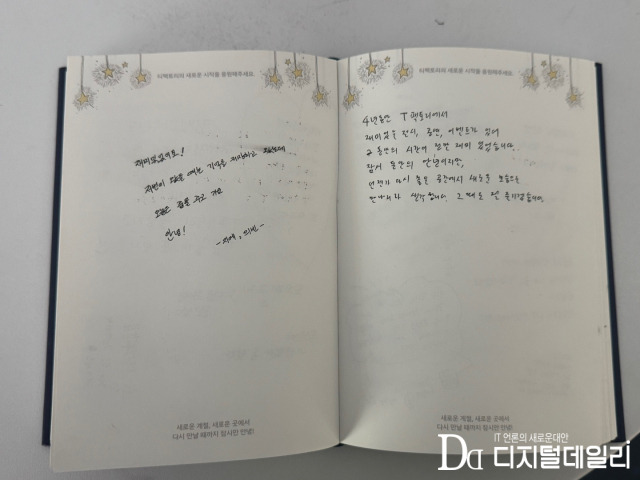 티팩토리의 새로운 시작을 응원해주세요.
재미있었어요!
저번이 왔을 때는 기억을 저장하고
오늘은 쉼을 주고 가요
안녕!
새로운 계절, 새로운 곳에서
다시 만날 때까지 잠시만 안녕!
티팩토리의 새로운 시작을 응원해주세요.
4년동안 T 팩토리에서
재미있는 전시, 공연, 이벤트가 있어
그 동안의 시간이 정말 재미 있었습니다.
잠시 동안의 안녕이지만,
언젠가 다시 좋은 공간에서 새로운 모습으로
만나리라 생각합니다. 그 때도 전 즐기겠습니다.
새로운 계절, 새로운 곳에서
다시 만날 때까지 잠시만 안녕!
IT 언론의 새로운대안
Dd 디지털데일리